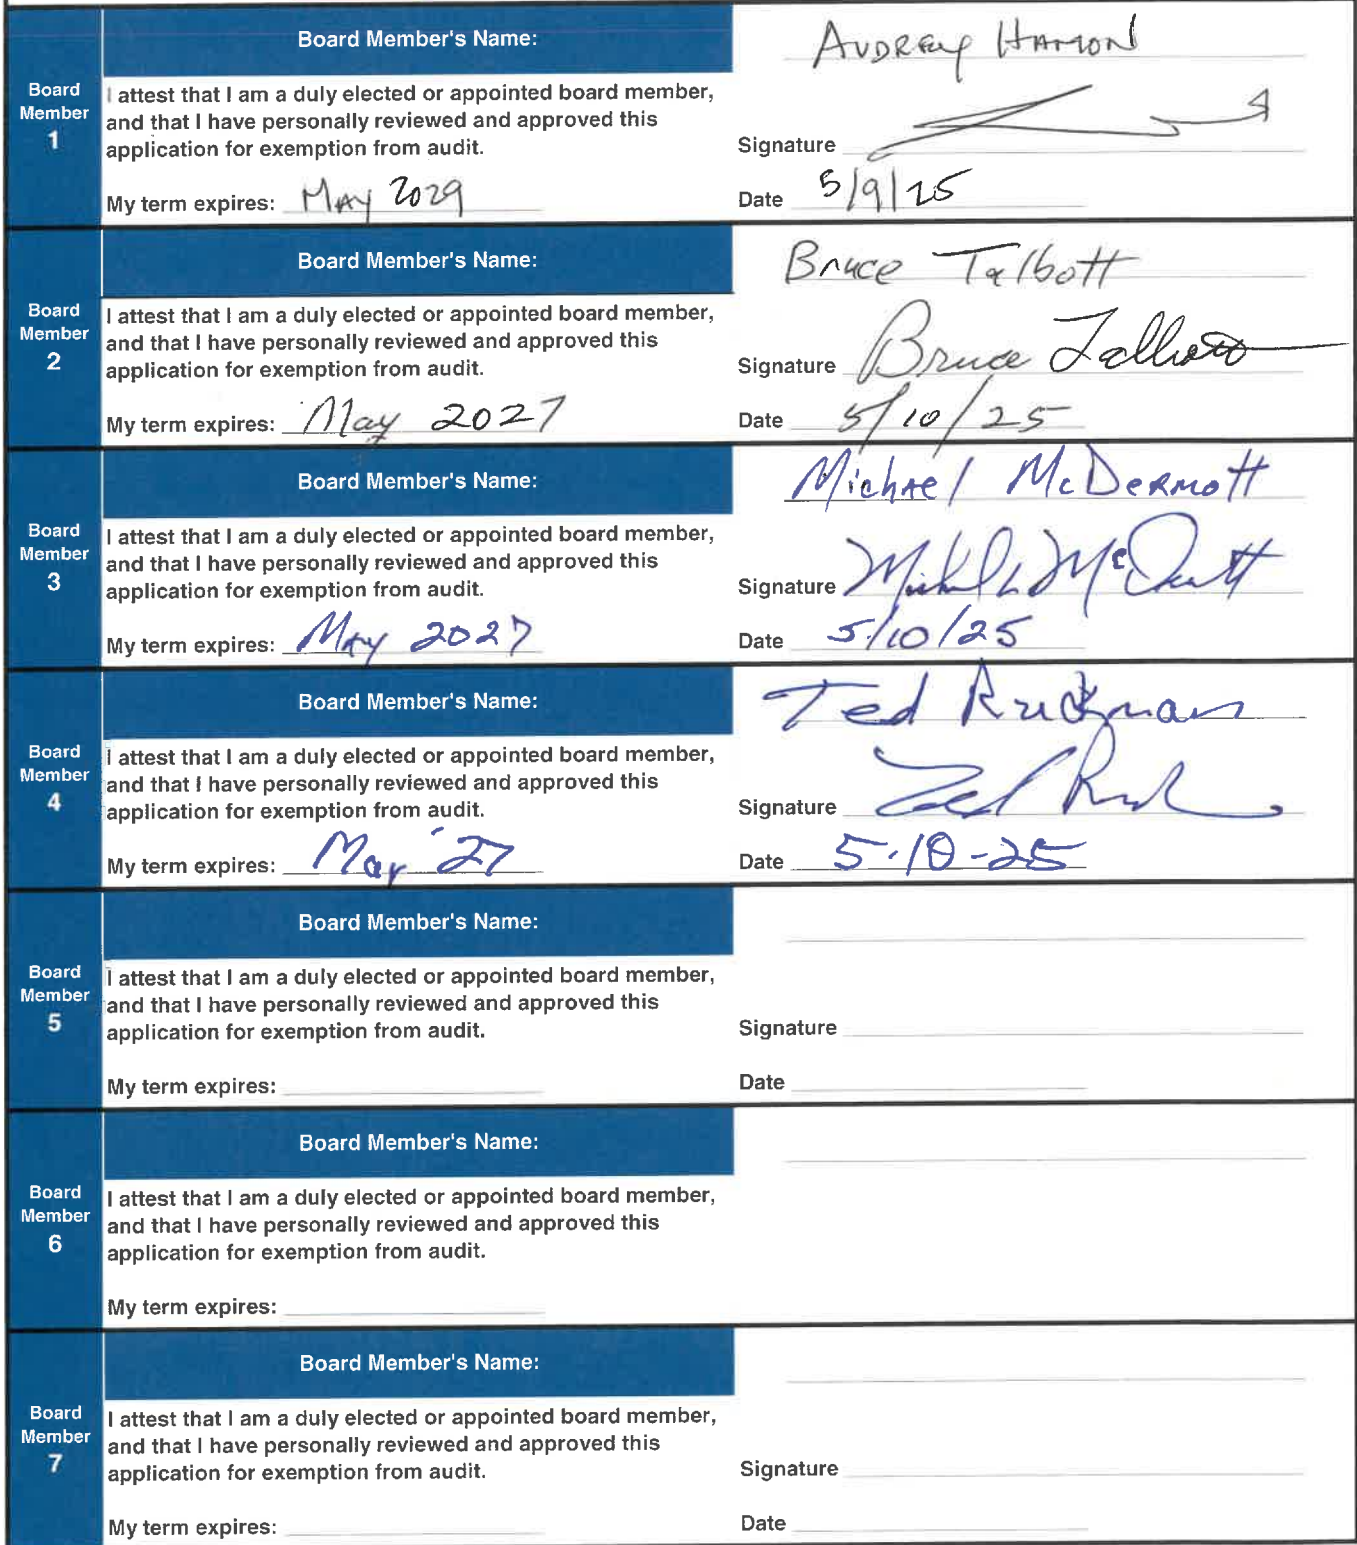 Board Member's Name: AUDREY HAMON
Board Member 1
I attest that I am a duly elected or appointed board member,
and that I have personally reviewed and approved this
application for exemption from audit.
Signature
My term expires: MAY 2029
Date 5/9/25
Board Member's Name: Bruce Talbott
Board Member 2
I attest that I am a duly elected or appointed board member,
and that I have personally reviewed and approved this
application for exemption from audit.
Signature Bruce Talbott
My term expires: May 2027
Date 5/10/25
Board Member's Name: Michael McDermott
Board Member 3
I attest that I am a duly elected or appointed board member,
and that I have personally reviewed and approved this
application for exemption from audit.
Signature
My term expires: May 2027
Date 5/10/25
Board Member's Name: Ted Ruckman
Board Member 4
I attest that I am a duly elected or appointed board member,
and that I have personally reviewed and approved this
application for exemption from audit.
Signature
My term expires: May '27
Date 5-10-25
Board Member's Name:
Board Member 5
I attest that I am a duly elected or appointed board member,
and that I have personally reviewed and approved this
application for exemption from audit.
Signature
My term expires:
Date
Board Member's Name:
Board Member 6
I attest that I am a duly elected or appointed board member,
and that I have personally reviewed and approved this
application for exemption from audit.
My term expires:
Board Member's Name:
Board Member 7
I attest that I am a duly elected or appointed board member,
and that I have personally reviewed and approved this
application for exemption from audit.
Signature
My term expires:
Date